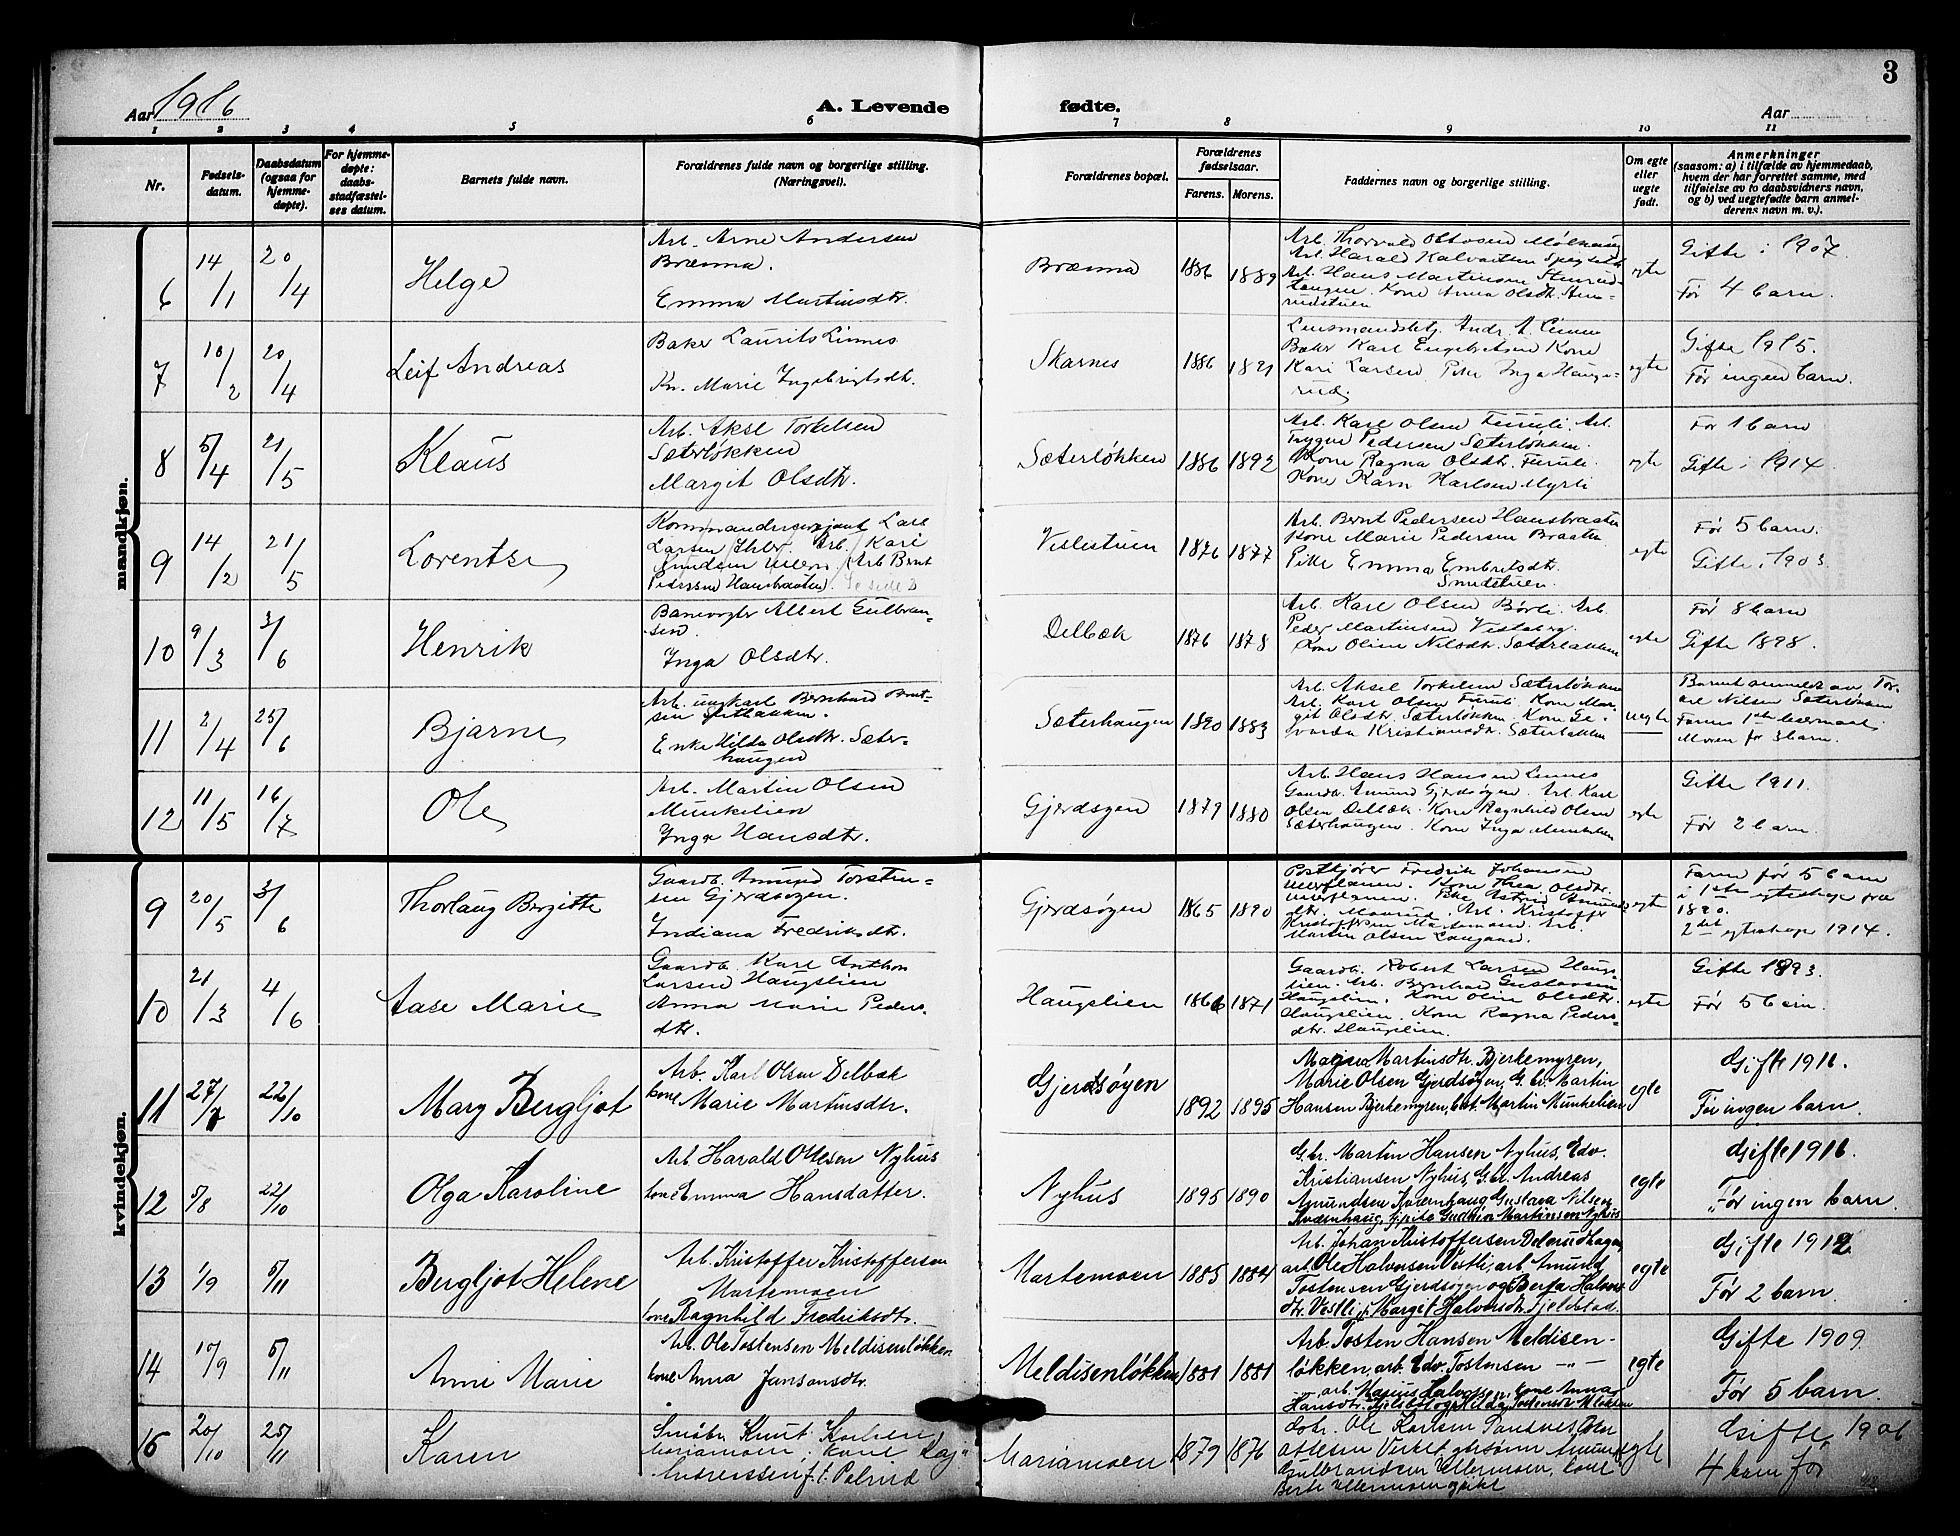 3
Aar 1916
A. Levende fødte.
Aar
1 2 3 4 5 6 7 8 9 10 11
Nr.
Fødselsdatum.
Daabsdatum (ogsaa for hjemmedøpte).
For hjemmedøpte: daabsstadfæstelses datum.
Barnets fulde navn.
Forældrenes fulde navn og borgerlige stilling. (Næringsvei).
Forældrenes bopæl.
Forældrenes fødselsaar.
Farens. Morens.
Faddernes navn og borgerlige stilling.
Om egte eller uegte født.
Anmerkninger
(saasom: a) i tilfælde av hjemmedaab,
hvem der har forrettet samme, med
tilføielse av to daabsvidners navn,
og b) ved uegtefødte barn anmelderens navn m. v.).
mandkjøn.
6 14/1 20/4 Helge
Arb. Arne Andersen
Brænna.
Emma Martinsdtr.
Brænna 1886 1889
Arb. Thorvald Ottosen
Arb. Harald
Arb. Hans Martinsen
Kone Anna Olsdtr.
egte
Gifte i 1907
Før 4 barn.
7 10/2 20/4 Leif Andreas
Baker Laurits Linnes
Kn. Marie Ingebrigtsdtr.
Skarnes 1886 1891
Baker Karl Engebretsen Kone
Kari Larsen Pike Inga Hauge-
rud.
egte
Gifte 1915.
Før ingen barn.
8 5/4 21/5 Klaus
Arb. Aksel Torkelsen
Sæterløkken
Margit Olsdtr.
Sæterløkken 1886 1892
Arb. Karl Olsen Furuli. Arb.
Trygve Pedersen Sæterløkken.
Kone Ragna Olsdtr. Furuli.
Kone Karn Karlsen Myrli
egte
Før 1 barn
Gifte i 1914
9 14/2 21/5 Lorentse
Kommandersergeant Carl
Larsen
Arb. Bernt
Pedersen Hansbraaten. Se side
Veslestuen 1876 1877
Arb. Bernt Pedersen Hansbraaten
Kone Marie Pedersen Braaten
Pike Emma Embretsdtr.
Smedstuen.
egte
Før 5 barn.
Gifte i 1903.
10 9/3 3/6 Henrik
Banevogter Albert Gulbran-
sen.
Inga Olsdtr.
Delbæk 1876 1878
Arb. Karl Olsen Børli. Arb.
Peder Martinsen
Kone Oline Nilsdtr. Sæterbakken
egte
Før 8 barn
Gifte 1898.
11 2/4 25/6 Bjarne
Arb. ungkarl Bernhard Bernt-
sen
Enke Hilda Olsdtr. Sæter-
haugen
Sæterhaugen 1890 1883
Arb. Aksel Torkelsen Sæterløkken
Arb. Karl Olsen Furuli. Kone Mar-
git Olsdtr. Sæterløkken. Kone Ge-
varda Kristiansdtr. Sæterbakken
uegte
Barnet anmeldt av Tor-
Nilsen Sæterløken
Farens 1ste leiermaal.
Moren før 3 barn.
12 11/5 16/7 Ole
Arb. Martin Olsen
Munkelien
Inga Hansdtr.
Gjerdsøgen 1879 1880
Arb. Hans Hansen Linnes
Gaardb. Amund Gjerdsøgen. Arb. Karl
Olsen Delbæk. Kone Ragnhild Olsen
Sæterhaugen. Kone Inga Munkelien
egte
Gifte 1911.
Før 2 barn.
kvindekjøn.
9 20/5 3/6 Thorlaug Bergitte
Gaardb. Amund Torsten-
sen Gjerdsøgen.
Indiana Fredriksdtr.
Gjerdsøgen 1865 1890
Postkjører Fredrik Johansen
Kone Thea Olsdtr.
Pike Astrid Amunds-
dtr. Arb. Kristoffer
Kristoffersen Martemoen. Arb.
Martin Olsen
egte
Faren før 5 barn
i 1ste egteskap fra
1890.
2det egteskap 1914.
10 21/3 4/6 Aase Marie
Gaardb. Karl Anthon
Larsen Haugslien
Anna Marie Peders-
dtr.
Haugslien 1866 1871
Gaardb. Robert Larsen Haugs-
lien. Arb. Bernhard Gustavsen
Haugslien. Kone Olin Olsdtr.
Haugslien. Kone Ragna Peders-
dtr. Haugslien.
egte
Gifte 1893.
Før 5 barn.
11 27/7 22/10 Mary Bergljot
Arb. Karl Olsen Delbæk
kone Marie Martinsdtr.
Gjerdsøgen 1892 1895
Martinsdtr. Bjerkemyren,
Marie Olsen Gjerdsøgen, G.br. Martin
Hansen Bjerkemyren, Martin Munkelien
egte
Gifte 1916.
Før ingen barn.
12 5/8 22/10 Olga Karoline
Arb. Harald Ottesen Nyhus
kone Emma Hansdatter.
Nyhus 1895 1890
G.br. Martin Hansen Nyhus, Edv.
Kristiansen Nyhus, G.br. Andreas
Amundsen Kværnhaug, Gustava Nilsen
Kværnhaug, Martinsen Nyhus
egte
Gifte 1916.
Før ingen barn.
13 1/9 5/11 Bergljot Helene
Arb. Kristoffer Kristoffersen
Martemoen
kone Ragnhild Fredriksdtr.
Martemoen 1885 1884
Arb. Johan Kristoffersen Delerudhagen,
arb. Ole Halvorsen Vestli, arb. Amund
Tostensen Gjerdsøgen og Berta Halvors-
dtr. Vestli, Margit Halvorsdtr. Fjeldstad.
egte
Gifte 1912
Før 2 barn.
14 17/9 5/11 Anne Marie
Arb. Ole Tostensen Meldisenløkken
kone Anna Jansonsdtr.
Meldisenløkken 1881 1881
Arb. Tosten Hansen Meldisen-
løkken, arb. Edv. Tostensen —„—
arb. Marius Halvorsen, kone Anna
Hansdtr.
egte
Gifte 1909.
Før 5 barn.
15 20/10 25/11 Karen
Småbr. Knut Karlsen,
Mariamoen, kone
Mariamoen 1879 1876
Ole Karlsen
Amund
Gulbrandsen Ullernmoen, kone
Berte Ullernmoen
egte
Gifte, 1906
4 barn før